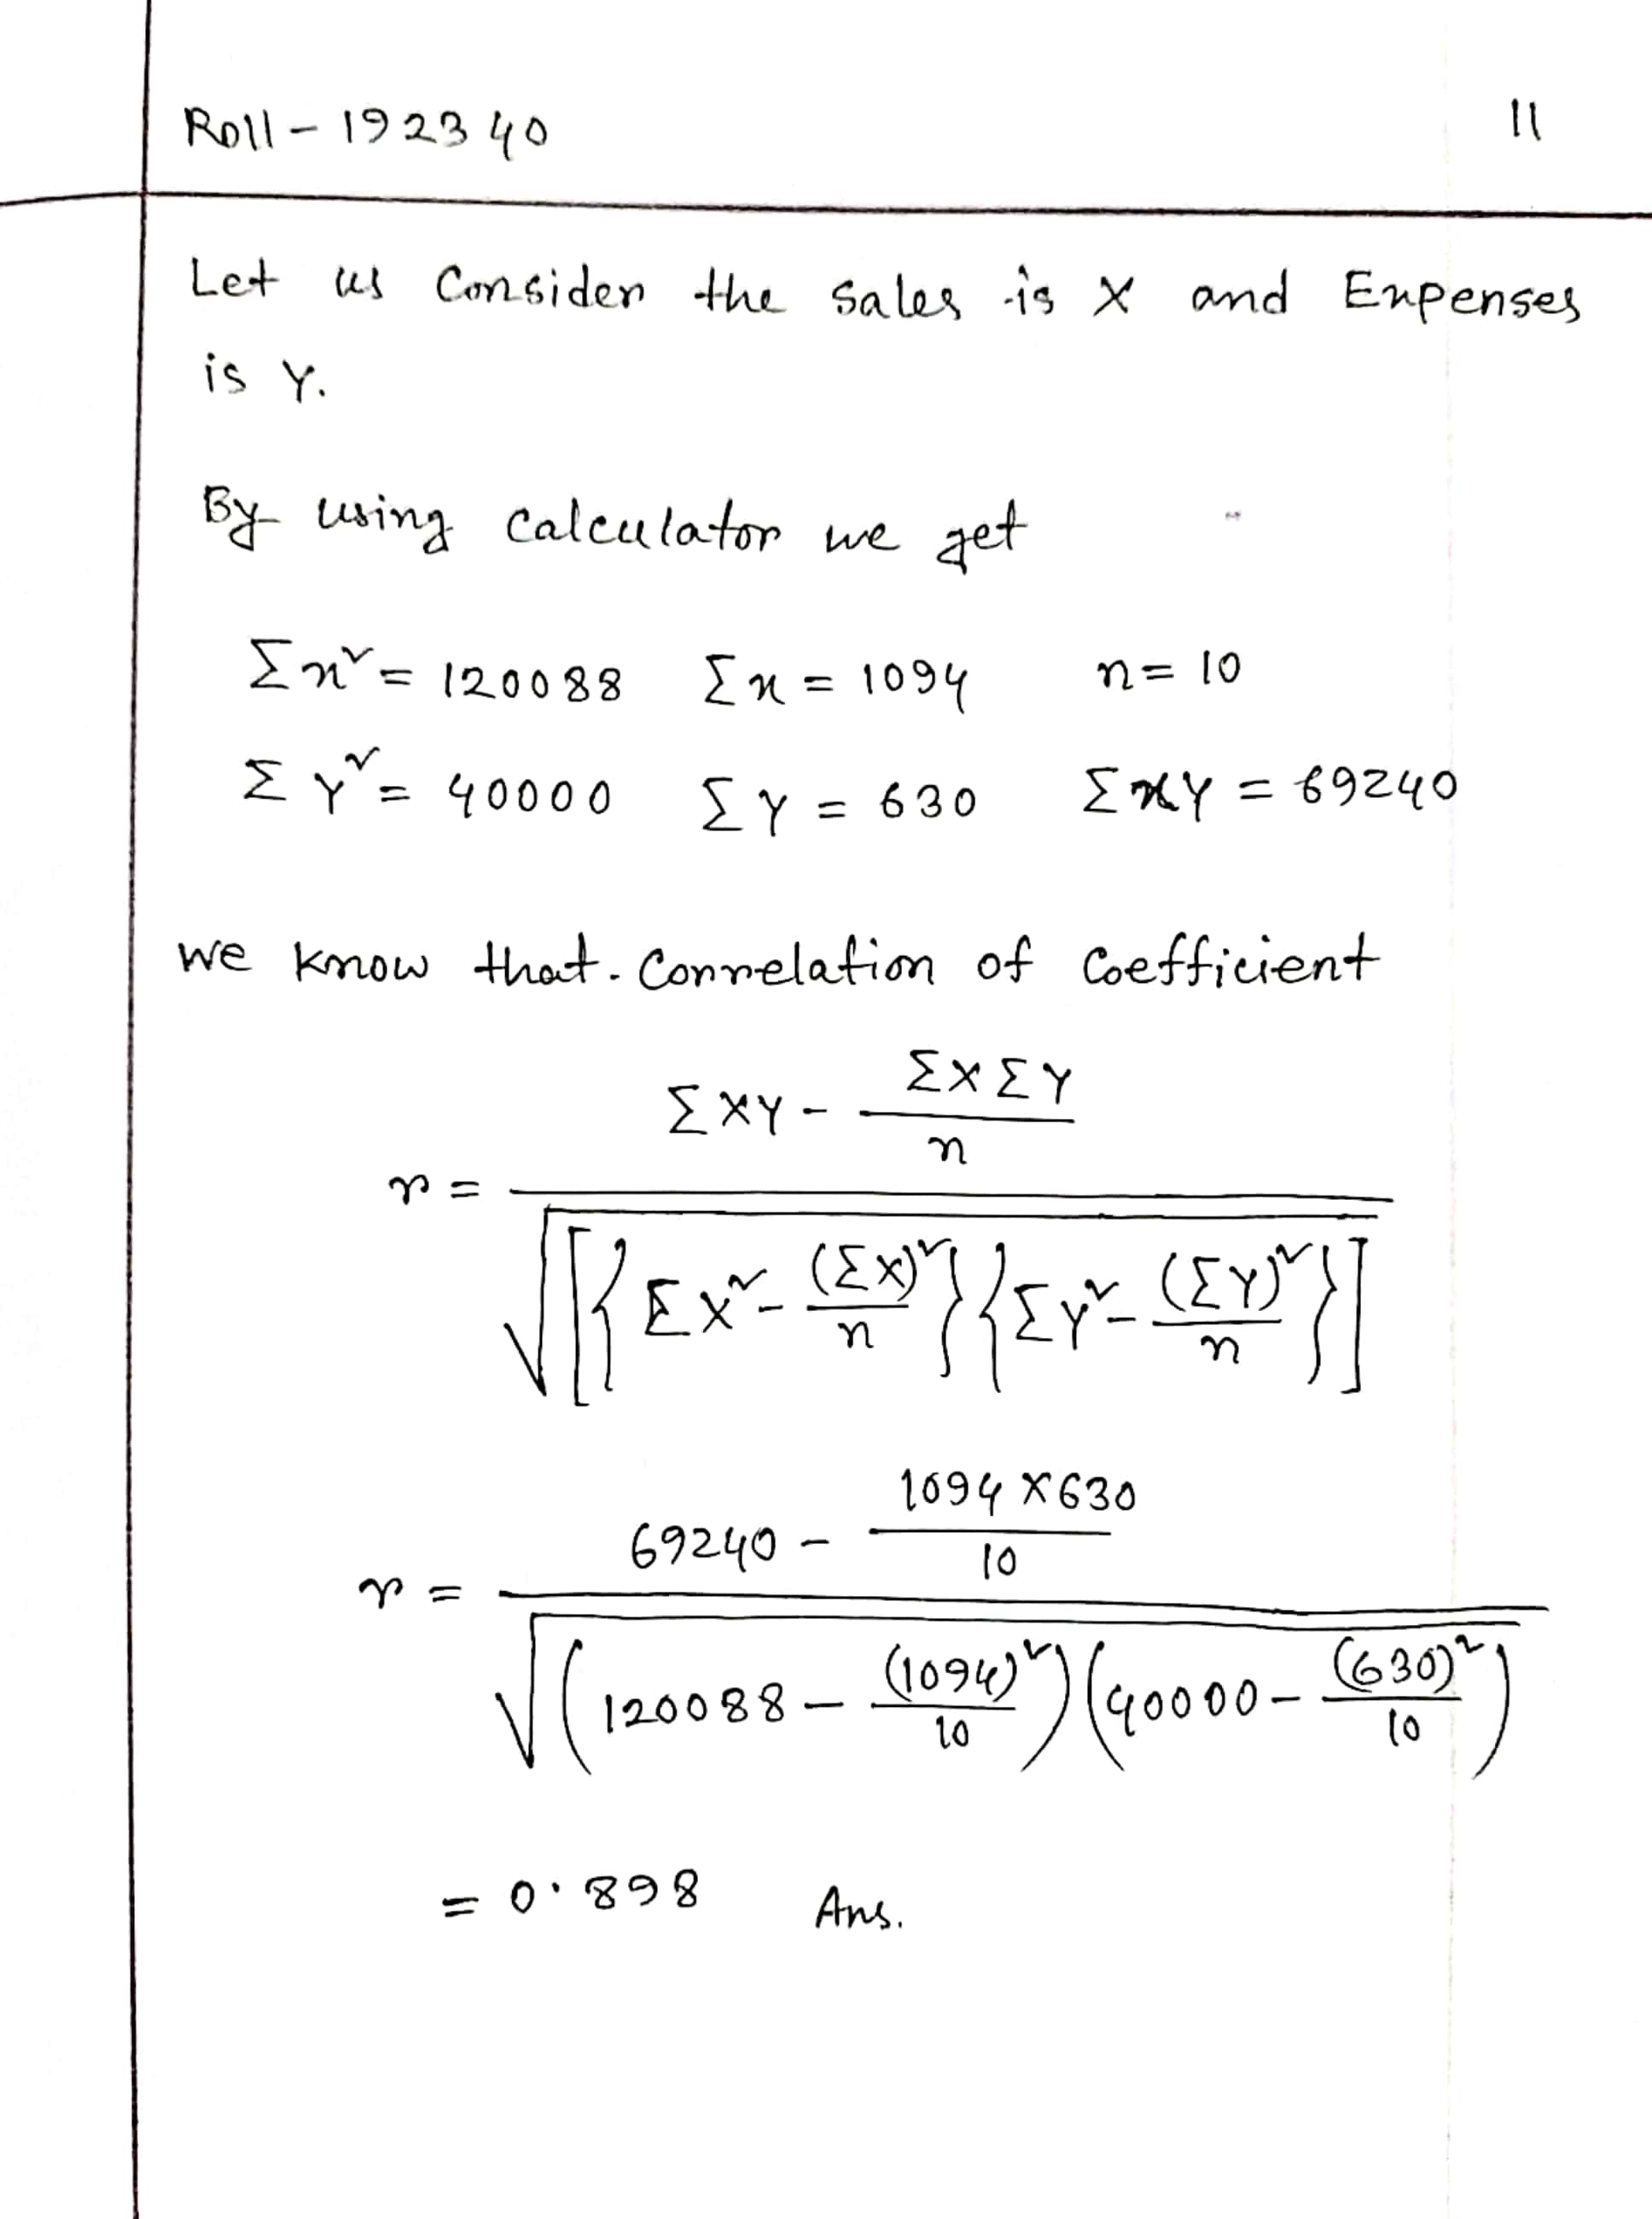 Roll - 192340 11
Let us Consider the sales is X and Expenses
is Y.
By using Calculator we get
Σx² = 120088 Σx = 1094 n = 10
ΣY² = 40000 ΣY = 630 ΣxY = 69240
We know that. Correlation of Coefficient
r = (ΣXY - (ΣXΣY)/n) / √[{ΣX² - (ΣX)²/n}{ΣY² - (ΣY)²/n}]
r = (69240 - (1094 × 630)/10) / √(120088 - (1094)²/10)(40000 - (630)²/10)
= 0.898 Ans.